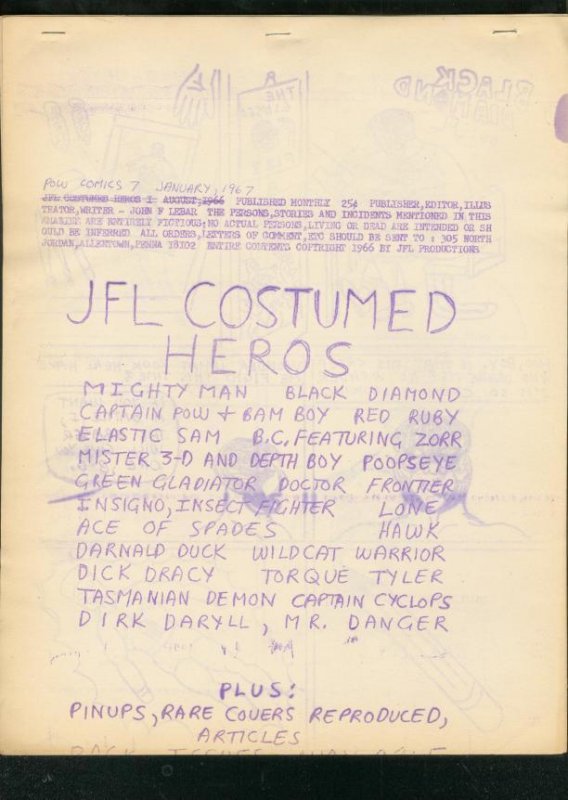 BLACK
DIAMOND
THE
POW COMICS 7 JANUARY, 1967
JFL COSTUMED HEROS 1 AUGUST, 1966 PUBLISHED MONTHLY 25¢ PUBLISHER, EDITOR, ILLUS
TRATOR, WRITER - JOHN F LEBAR THE PERSONS, STORIES AND INCIDENTS MENTIONED IN THIS
MAGAZINE ARE ENTIRELY FICTIOUS; NO ACTUAL PERSONS, LIVING OR DEAD ARE INTENDED OR SH
OULD BE INFERRED ALL ORDERS, LETTERS OF COMMENT, ETC SHOULD BE SENT TO : 305 NORTH
JORDAN, ALLENTOWN, PENNA 18102 ENTIRE CONTENTS COPYRIGHT 1966 BY JFL PRODUCTIONS
JFL COSTUMED
HEROS
MIGHTY MAN BLACK DIAMOND
CAPTAIN POW + BAM BOY RED RUBY
ELASTIC SAM B.C. FEATURING ZORR
MISTER 3-D AND DEPTH BOY POOPSEYE
GREEN GLADIATOR DOCTOR FRONTIER
INSIGNO, INSECT FIGHTER LONE
ACE OF SPADES HAWK
DARNALD DUCK WILDCAT WARRIOR
DICK DRACY TORQUE TYLER
TASMANIAN DEMON CAPTAIN CYCLOPS
DIRK DARYLL, MR. DANGER
PLUS:
PINUPS, RARE COVERS REPRODUCED,
ARTICLES